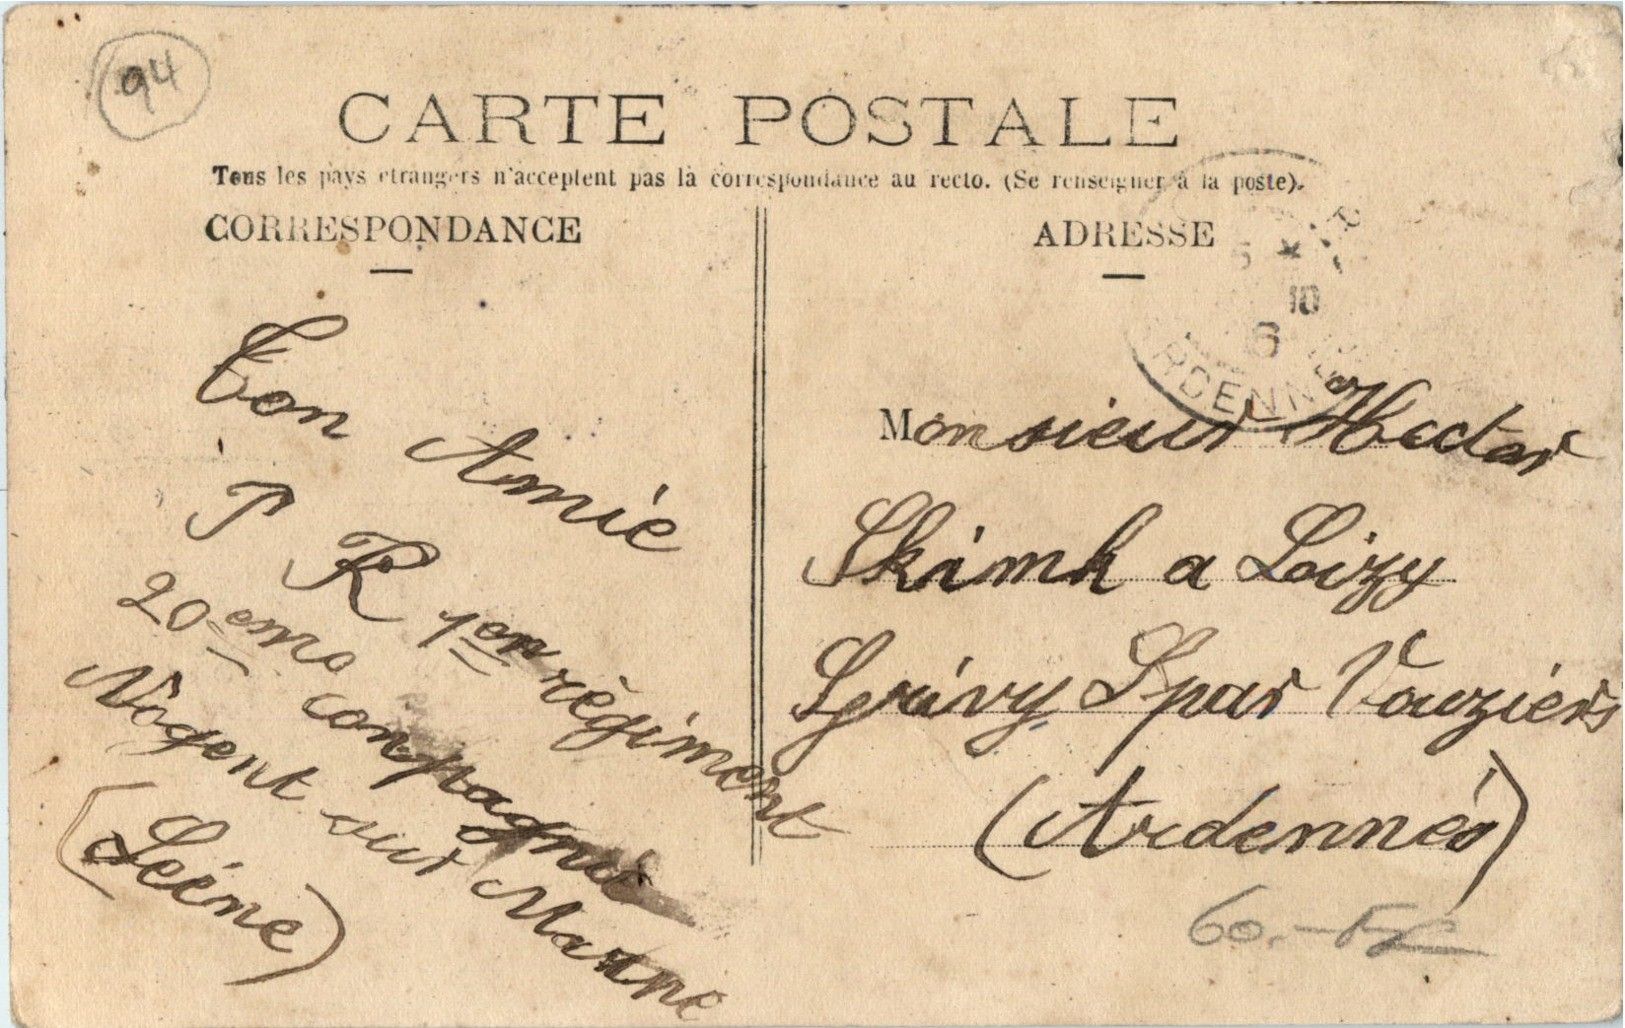 94
CARTE POSTALE
Tous les pays etrangers n'acceptent pas la correspondance au recto. (Se renseigner à la poste).
CORRESPONDANCE
Ton Amie
P R 1er régiment
20eme compagnie
Nogent sur Marne
(Séine)
ADRESSE
10
6
RDENN
Monsieur Hector
Skimh a Loizy
Par Vouziers
(Ardennes)
60.-